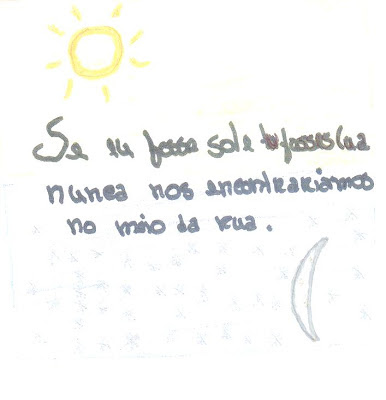 Se eu fosse sol e tu fosses lua
nunca nos encontrariamos
no meio da rua.